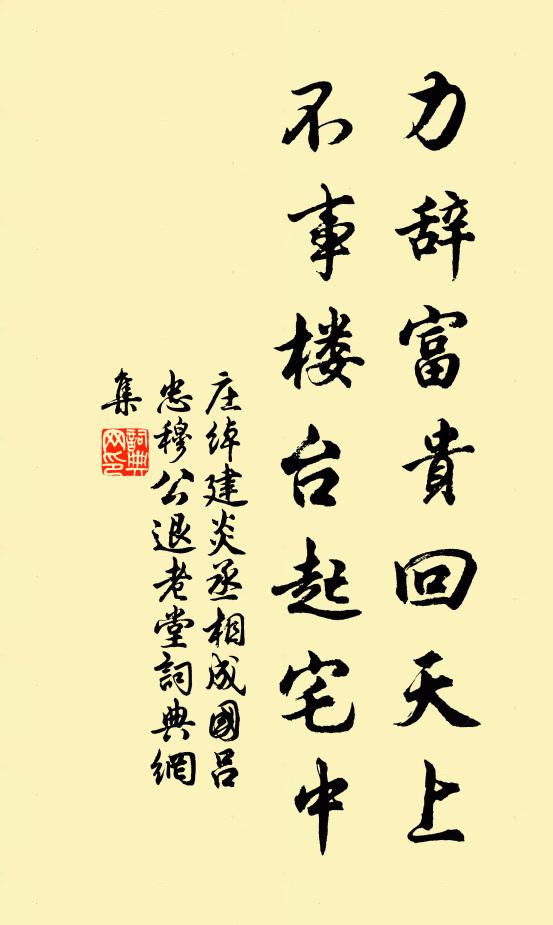 力辞富貴回天上
不事楼台起宅中
庄绰建炎丞相成國吕
忠穆公退老堂詞典網
集
詞典
网印